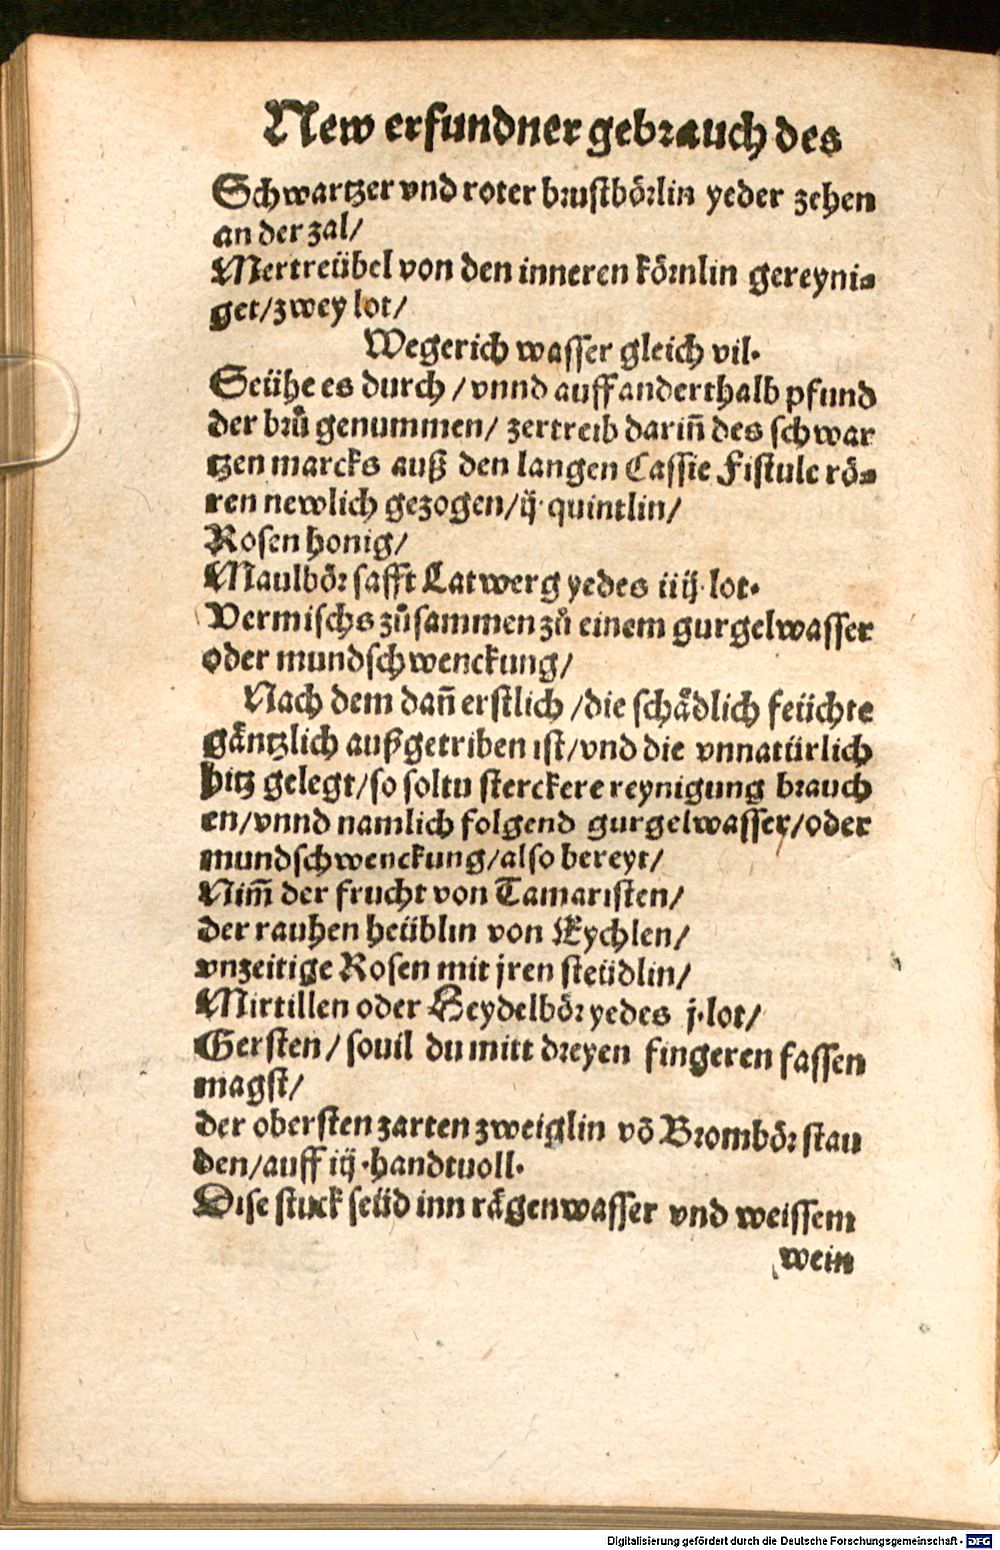 New erfundner gebrauch des
Schwartzer vnd roter brustbörlin yeder zehen
an der zal/
Mertreübel von den inneren körnlin gereyni-
get/zwey lot/
Wegerich wasser gleich vil.
Seühe es durch / vnnd auff anderthalb pfund
der bruͤ genummen/ zertreib dariñ des schwar
tzen marcks auß den langen Cassie Fistule rö-
ren newlich gezogen/ij· quintlin/
Rosen honig/
Maulbör safft Latwerg yedes iiij· lot.
Vermischs zůsammen zů einem gurgelwasser
oder mundschwenckung/
Nach dem dañ erstlich /die schaͤdlich feüchte
gaͤntzlich außgetriben ist/vnd die vnnatürlich
hitz gelegt/so soltu sterckere reynigung brauch
en/vnnd namlich folgend gurgelwasser/oder
mundschwenckung/also bereyt/
Nim̃ der frucht von Tamaristen/
der rauhen heüblin von Eychlen/
vnzeitige Rosen mit jren steüdlin/
Mirtillen oder Heydelbör yedes j·lot/
Gersten/ souil du mitt dreyen fingeren fassen
magst/
der obersten zarten zweiglin võ Brombör stau
den/auff iij ·handtuoll·
Dise stuck seüd inn raͤgenwasser vnd weissem
wein
Digitalisierung gefördert durch die Deutsche Forschungsgemeinschaft - DFG